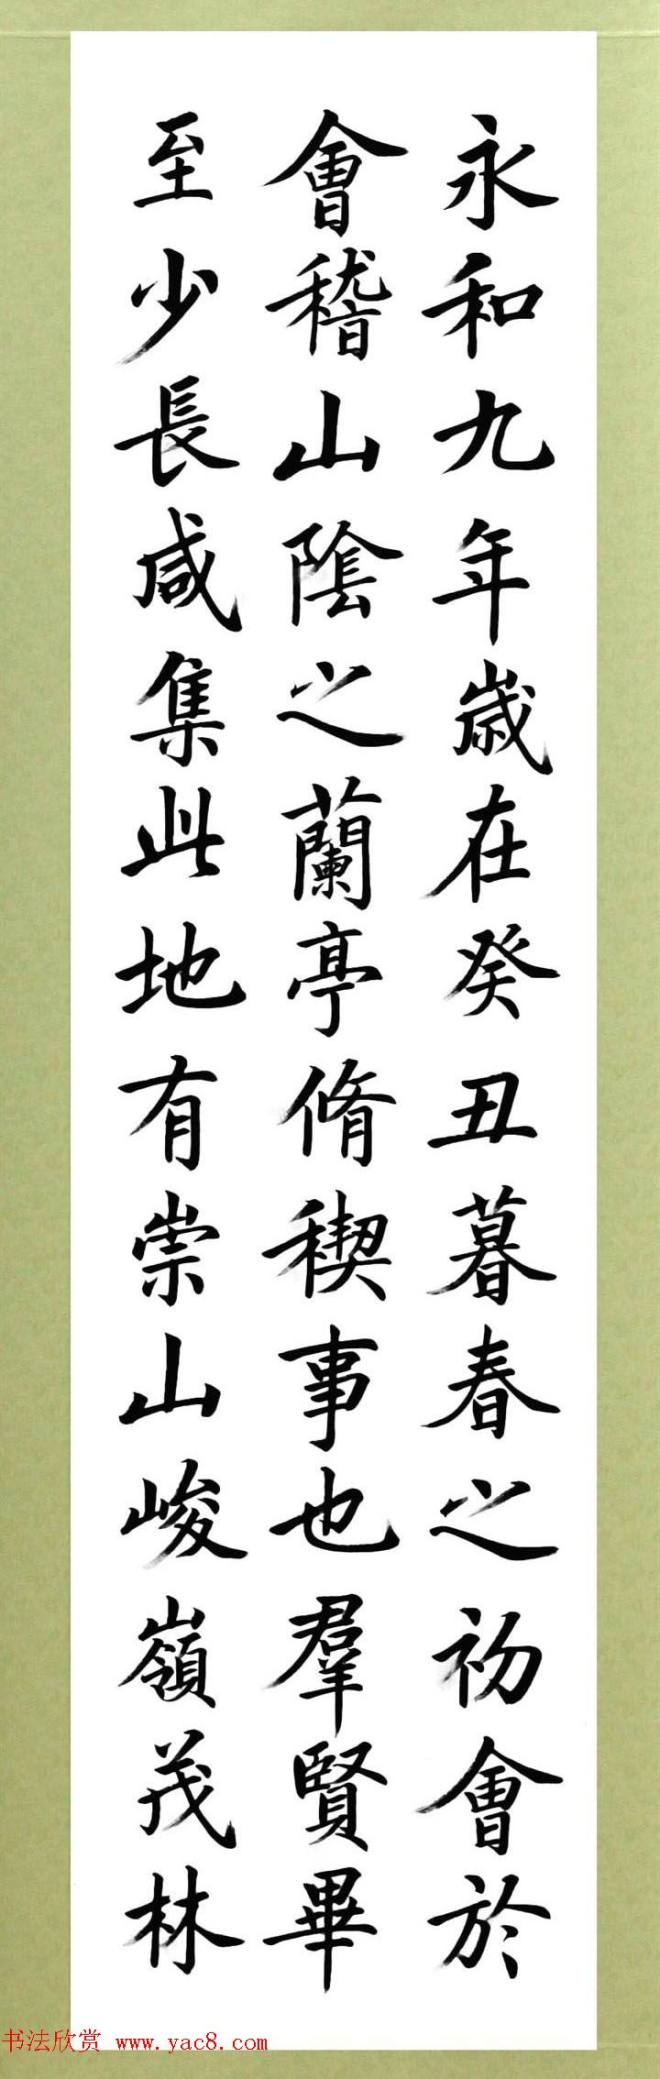 永和九年歲在癸丑暮春之初會於
會稽山陰之蘭亭脩稧事也羣賢畢
至少長咸集此地有崇山峻嶺茂林
书法欣赏 www.yac8.com